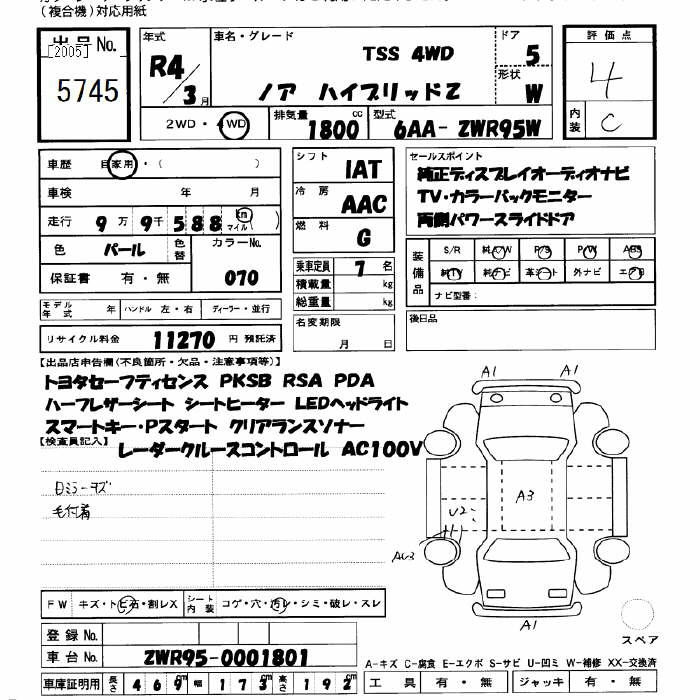 (複合機)対応用紙
出品No.
[2005]
5745
年式
R4/3月
車名・グレード
TSS 4WD
ノア ハイブリッドZ
ドア
5
形状
W
評価点
4
内装
C
2WD・4WD
排気量
1800 cc
型式
6AA-ZWR95W
車歴 自家用・( )
車検 年 月
走行 9万9千588 km マイル( )
色 パール 色替 カラーNo. 070
保証書 有・無
シフト IAT
冷房 AAC
燃料 G
乗車定員 7名
積載量 kg
総重量 kg
セールスポイント
純正ディスプレイオーディオナビ
TV・カラーバックモニター
両側パワースライドドア
装備品
S/R 純A/W P/S P/W ABS
純TV 純ナビ 革シート 外ナビ エアB
ナビ型番:
モデル年式 年 ハンドル 左・右 ディーラー・並行
名変期限 月 日
後日品
リサイクル料金 11270 円 預託済
【出品店申告欄(不良箇所・欠品・注意事項等)】
トヨタセーフティセンス PKSB RSA PDA
ハーフレザーシート シートヒーター LEDヘッドライト
スマートキー・Pスタート クリアランスソナー
【検査員記入】
レーダークルースコントロール AC100V
毛付着
A1 A1
A3
U2
A1
FW キズ・トビ石・割レX シート内装 コゲ・穴・汚レ・シミ・破レ・スレ
登録No.
車台No. ZWR95-0001801
車庫証明用 長さ 469cm 幅 173cm 高さ 192cm
スペア
A-キズ C-腐食 E-エクボ S-サビ U-凹ミ W-補修 XX-交換済
工具 有・無 ジャッキ 有・無